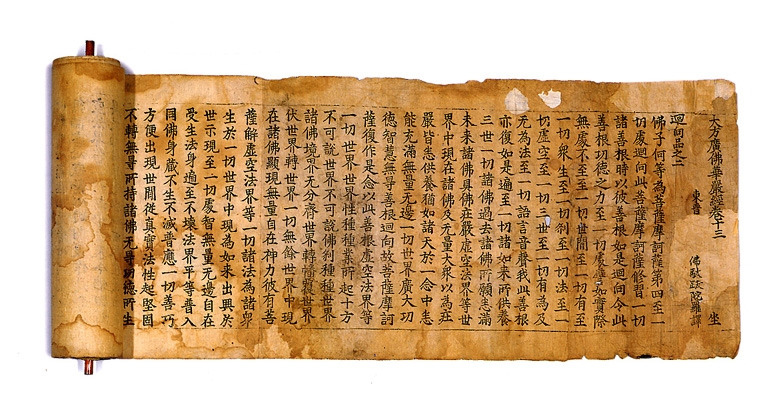 大方廣佛華嚴經卷十三 坐
東晉 佛馱跋陀羅譯
迴向品之二
佛子何等為菩薩摩訶薩第四至一
切處迴向此菩薩摩訶薩修習一切
諸善根時以彼善根如是迴向令此
善根功德之力至一切處譬如實際
無處不至至一切世閒至一切有至
一切衆生至一切刹至一切法至一
切虛空至一切三世至一切有為及
无為法至一切語言音聲我此善根
亦復如是遍至一切諸如来所供養
三世一切諸佛過去諸佛所願悉滿
未来諸佛具佛莊嚴虛空法界等世
界中現在諸佛及无量大衆以為莊
嚴皆悉供養猶如諸天於一念中悉
能充滿無量无邊一切世界廣大功
德智慧無㝵善根迴向故菩薩摩訶
薩復作是念以此善根虛空法界等
一切世界世界性種種業所起十方
不可說世界不可說佛刹種種世界
諸佛境界无分齊世界轉幡覆世界
伏世界轉世界一切無餘世界中現
在諸佛顯現無量自在神力彼有菩
薩解虛空法界等一切諸法為諸衆
生於一切世界中現為如来出興於
世示現至一切處智無量无邊自在
受生法身遍至不壞法界平等普入
同佛身藏不生不滅普應一切善巧
方便出現世閒從真實法性起堅固
不轉無㝵所持諸佛无㝵功德所生